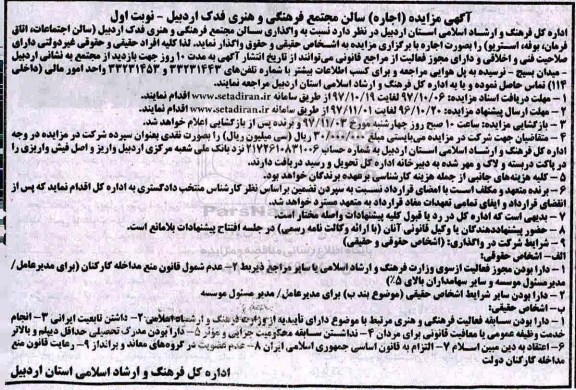 آگهی مزایده (اجاره) سالن مجتمع فرهنگی و هنری فدک اردبیل - نوبت اول
اداره کل فرهنگ و ارشاد اسلامی استان اردبیل در نظر دارد نسبت به واگذاری سالن مجتمع فرهنگی و هنری فدک اردبیل (سالن اجتماعات، اتاق
فرمان، بوفه، استریو) را بصورت اجاره با برگزاری مزایده به اشخاص حقیقی و حقوق واگذار نماید. لذا کلیه افراد حقیقی و حقوقی غیردولتی دارای
صلاحیت فنی و اخلاقی و دارای مجوز فعالیت از مراجع قانونی می‌توانند از تاریخ انتشار آگهی به مدت ۱۰ روز جهت بازدید از مجتمع به نشانی اردبیل
- میدان بسیج - نرسیده به پل هوایی مراجعه و برای کسب اطلاعات بیشتر با شماره تلفن‌های ۳۳۲۳۱۴۴۳ و ۳۳۲۳۱۴۵۳ واحد امور مالی (داخلی
۱۱۴) تماس حاصل نموده و یا به اداره کل فرهنگ و ارشاد اسلامی استان اردبیل مراجعه نمایند.
۱- مهلت دریافت اسناد مزایده: ۹۷/۱۰/۰۶ لغایت ۹۷/۱۰/۱۹ از طریق سامانه www.setadiran.ir اقدام نمایند.
۲- مهلت ارسال پیشنهاد مزایده: ۹۶/۱۰/۲۰ لغایت ۹۷/۱۱/۰۱ از طریق سامانه www.setadiran.ir اقدام نمایند.
۳- بازگشایی مزایده: ساعت ۱۰ صبح روز چهارشنبه مورخ ۹۷/۱۱/۰۳ و برنده پس از بازگشایی اعلام خواهد شد.
۴- متقاضیان جهت شرکت در مزایده می‌بایست مبلغ ۳۰/۰۰۰/۰۰۰ ریال (سی میلیون ریال) را بصورت نقدی بعنوان سپرده شرکت در مزایده در وجه
اداره کل فرهنگ و ارشاد اسلامی استان اردبیل به شماره حساب ۲۱۷۲۶۱۰۸۳۱۰۰۶ نزد بانک ملی شعبه مرکزی اردبیل واریز و اصل فیش واریزی را
در پاکت دربسته و لاک و مهر شده به دبیرخانه اداره کل تحویل و رسید دریافت دارند.
۵- کلیه هزینه‌های جانبی از جمله هزینه کارشناسی برعهده برندگان خواهد بود.
۶- برنده متعهد و مکلف است با امضای قرارداد نسبت به سپردن تضمین براساس نظر کارشناس منتخب دادگستری به اداره کل اقدام نماید که پس از
انقضای قرارداد و ایفای تمامی تعهدات مفاد قرارداد به متعهد مسترد خواهد شد.
۷- بدیهی است که اداره کل در رد یا قبول کلیه پیشنهادات واصله مختار است.
۸- حضور پیشنهاددهندگان یا وکیل قانونی آنان (با ارائه وکالت نامه رسمی) در جلسه افتتاح پیشنهادات بلامانع است.
۹- شرایط شرکت در واگذاری: (اشخاص حقوقی و حقیقی)
الف- اشخاص حقوقی:
۱- دارا بودن مجوز فعالیت ازسوی وزارت فرهنگ و ارشاد اسلامی یا سایر مراجع ذیربط ۲- عدم شمول قانون منع مداخله کارکنان (برای مدیرعامل/
مدیرمسئول موسسه و سایر سهامداران بالای ۵٪)
۳- دارا بودن سایر شرایط اشخاص حقیقی (موضوع بند ب) برای مدیرعامل/ مدیر مسئول موسسه
ب- اشخاص حقیقی:
۱- دارا بودن سابقه فعالیت فرهنگی و هنری مرتبط با موضوع دارای تأییدیه از وزارت فرهنگ و ارشاد اسلامی ۲- داشتن تابعیت ایرانی ۳- انجام
خدمت وظیفه عمومی یا معافیت قانونی برای مردان ۴- نداشتن سابقه محکومیت جزایی و موثر ۵- دارا بودن مدرک تحصیلی حداقل دیپلم و بالاتر
۶- اعتقاد به دین مبین اسلام ۷- التزام به قانون اساسی جمهوری اسلامی ایران ۸- عدم عضویت در گروه‌های معاند و برانداز ۹- رعایت قانون منع
مداخله کارکنان دولت
اداره کل فرهنگ و ارشاد اسلامی استان اردبیل